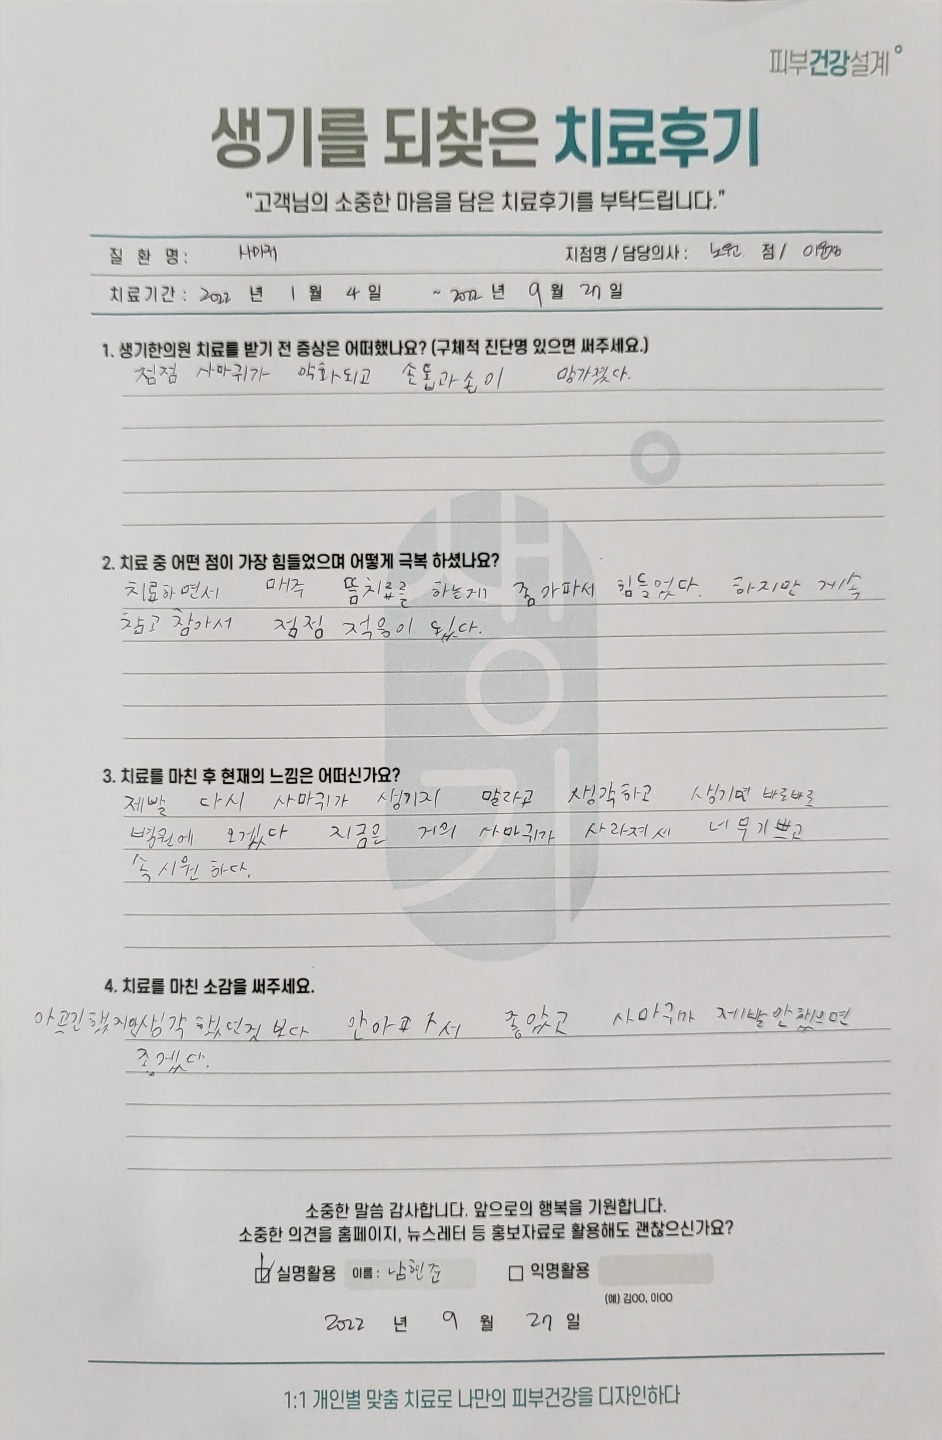 피부건강설계
생기를 되찾은 치료후기
"고객님의 소중한 마음을 담은 치료후기를 부탁드립니다."
질 환 명 : 사마귀 지점명 / 담당의사 : 노원 점 /
치료기간 : 2022 년 1 월 4 일 ~ 2022 년 9 월 27 일
1. 생기한의원 치료를 받기 전 증상은 어떠했나요? (구체적 진단명 있으면 써주세요.)
점점 사마귀가 악화되고 손톱과 손이 망가졌다.
2. 치료 중 어떤 점이 가장 힘들었으며 어떻게 극복 하셨나요?
치료하면서 매주 뜸치료를 하는게 좀 아파서 힘들었다. 하지만 계속
참고 참아서 점점 적응이 됬다.
3. 치료를 마친 후 현재의 느낌은 어떠신가요?
제발 다시 사마귀가 생기지 말라고 생각하고 생기면 바로바로
병원에 오겠다 지금은 거의 사마귀가 사라져서 너무 기쁘고
속 시원 하다.
4. 치료를 마친 소감을 써주세요.
아프긴 했지만 생각 했던것 보다 안아파서 좋았고 사마귀가 제발 안했으면
좋겠다.
생기
소중한 말씀 감사합니다. 앞으로의 행복을 기원합니다.
소중한 의견을 홈페이지, 뉴스레터 등 홍보자료로 활용해도 괜찮으신가요?
실명활용 이름 : 남현준 익명활용
(예) 김OO, 이OO
2022 년 9 월 27 일
1:1 개인별 맞춤 치료로 나만의 피부건강을 디자인하다